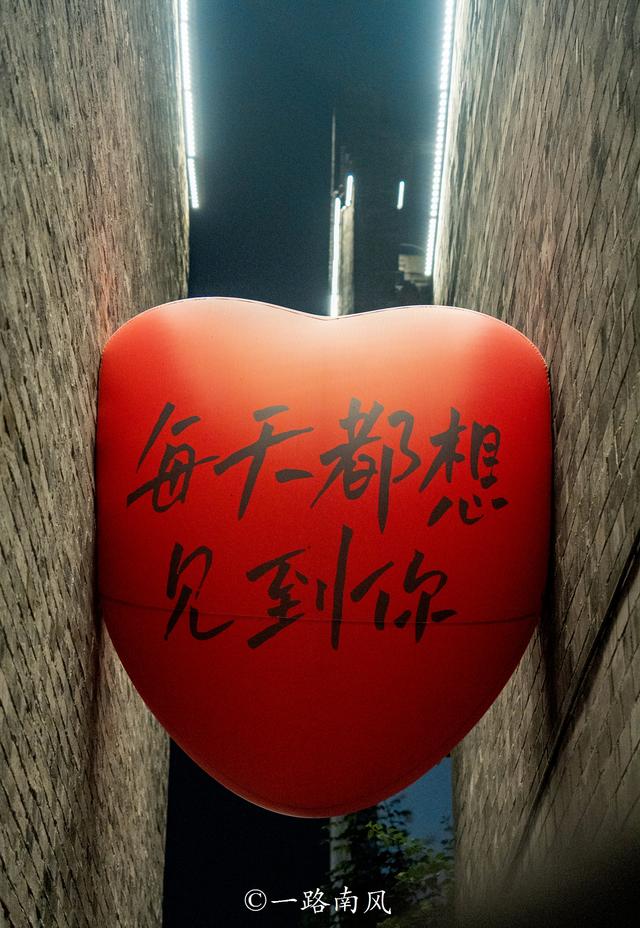 每天都想
见到你
©一路南风